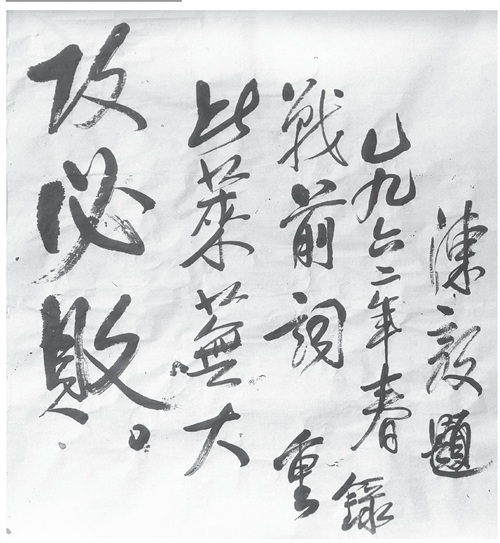 攻必敗。
此萊蕪大
戰前詞重
一九六二年春錄
陳毅題